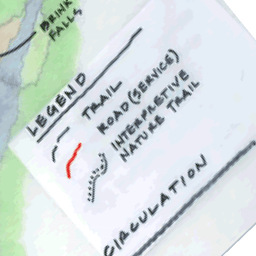 BRINK
FALLS
LEGEND
TRAIL
ROAD (SERVICE)
INTERPRETIVE
NATURE TRAIL
CIRCULATION